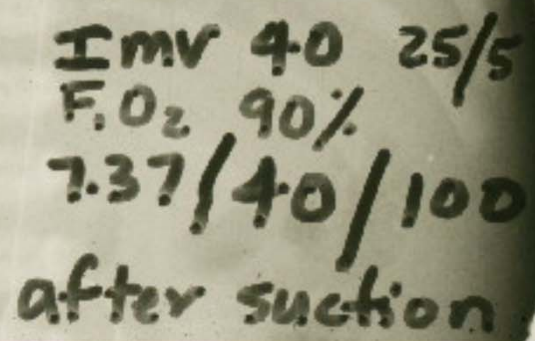 Imv 40 25/5
FiO2 90%
7.37/40/100
after suction